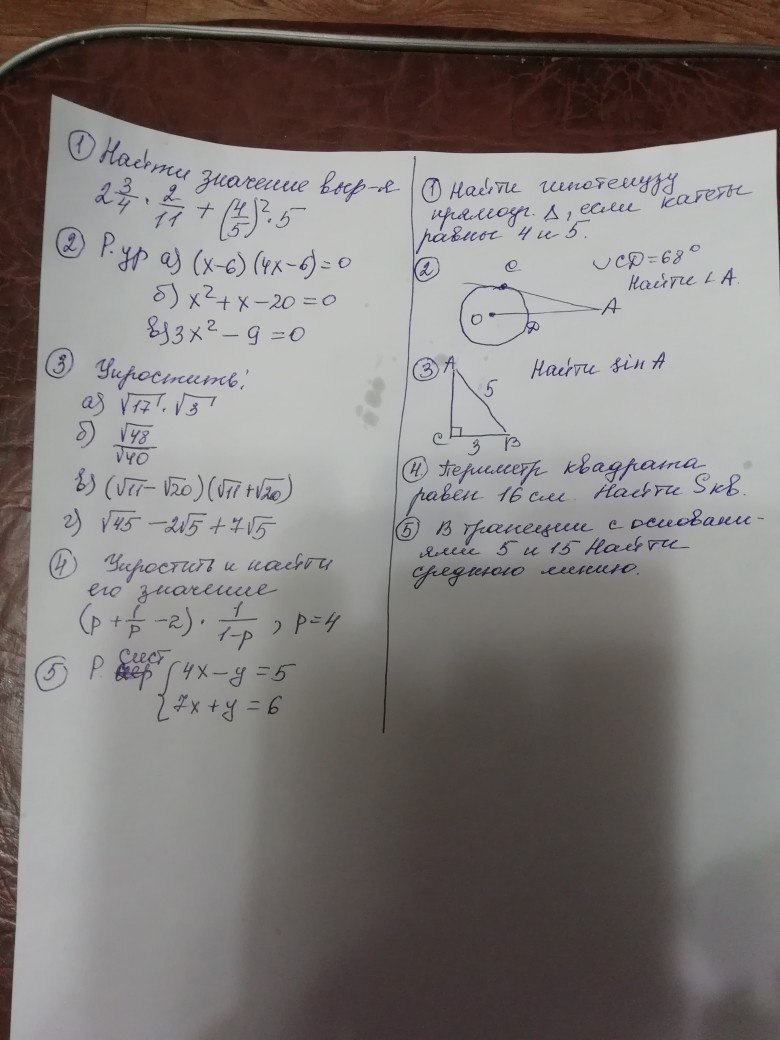 ① Найти значение выр-я
2 3/4 · 2/11 + (4/5)² · 5
② Р. ур а) (x-6)(4x-6)=0
б) x² + x - 20 = 0
в) 3x² - 9 = 0
③ Упростить:
а) √17 · √3
б) √48/√40
в) (√11 - √20)(√11 + √20)
г) √45 - 2√5 + 7√5
④ Упростить и найти
его значение
(p + 1/p - 2) · 1/(1-p), p=4
⑤ Р. сист { 4x - y = 5
7x + y = 6
① Найти гипотенузу
прямоуг. Δ, если катеты
равны 4 и 5.
② C ∪CD = 68°
Найти ∠A.
O D A
③ A Найти sin A
5
C 3 B
④ Периметр квадрата
равен 16 см. Найти Sкв.
⑤ В трапеции с основани-
ями 5 и 15 Найти
среднюю линию.